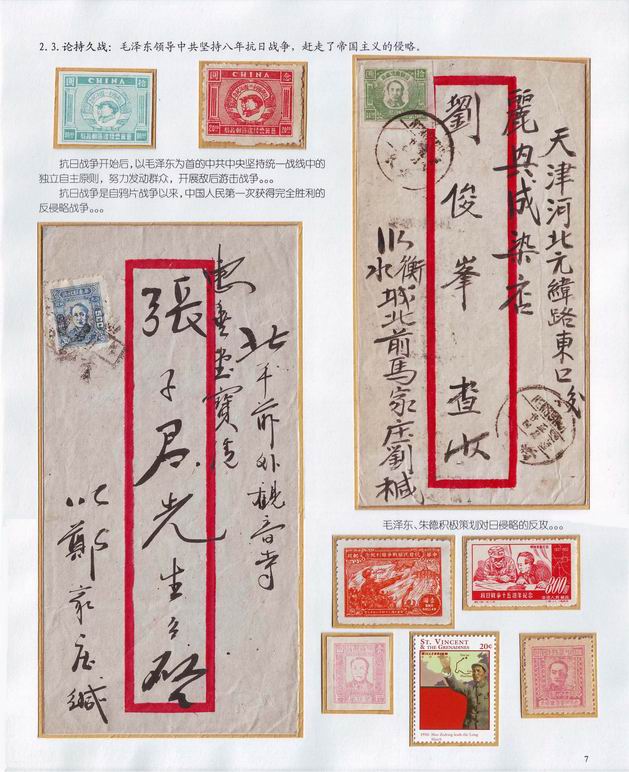 2.3.论持久战：毛泽东领导中共坚持八年抗日战争，赶走了帝国主义的侵略。
CHINA
抗日战争开始后，以毛泽东为首的中共中央坚持统一战线中的
独立自主原则，努力发动群众，开展敌后游击战争。。。
抗日战争是自鸦片战争以来，中国人民第一次获得完全胜利的
反侵略战争。。。
天津河北元緯路東口
麗興成染店
劉俊峯查收
衡水城北前馬家庄劉械
北平前外観音寺
張子君先生台啓
鄭家庄緘
毛泽东、朱德积极策划对日侵略的反攻。。。
抗日战争十五週年纪念
800
ST. VINCENT
& THE GRENADINES
MILLENNIUM
20¢
1934: Mao Zedong leads the Long
March
7